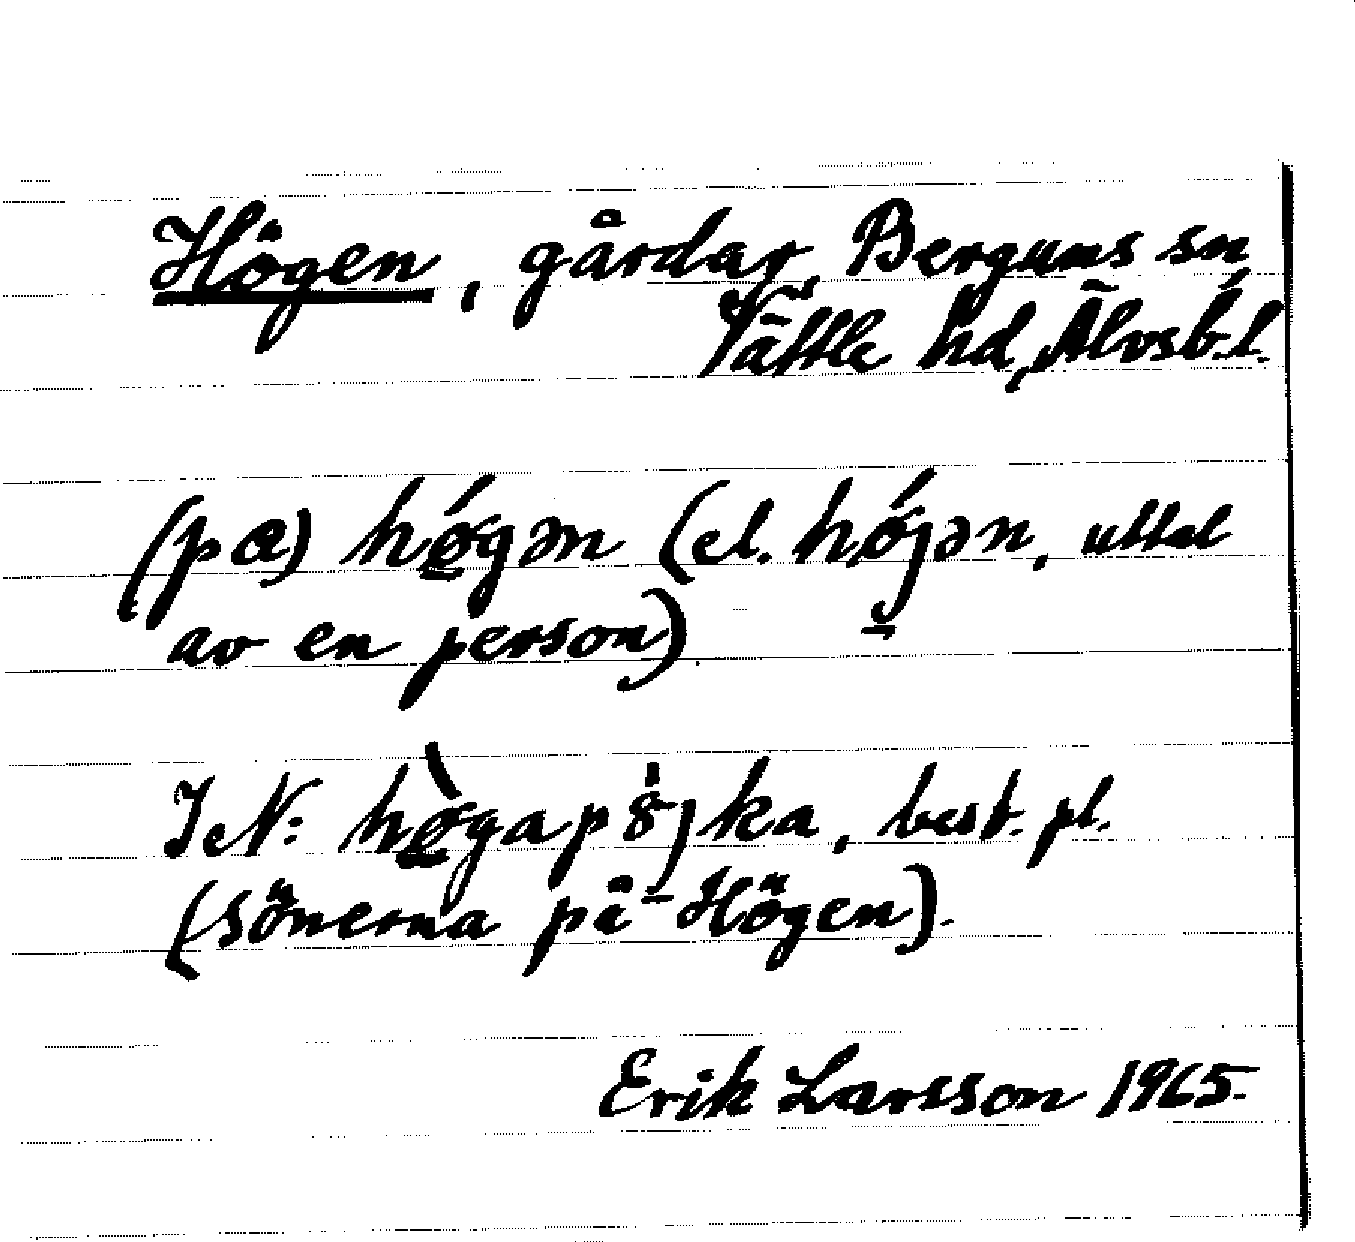 Högen, gårdar, Bergums sn,
Vättle hd, Älvsb.l.
(pa) hǿ̱gən (el. hǿjən, uttal
av en person).
IN: hø̱̀gapȣ̍jka, best. pl.
(sönerna på Högen).
Erik Larsson 1965.